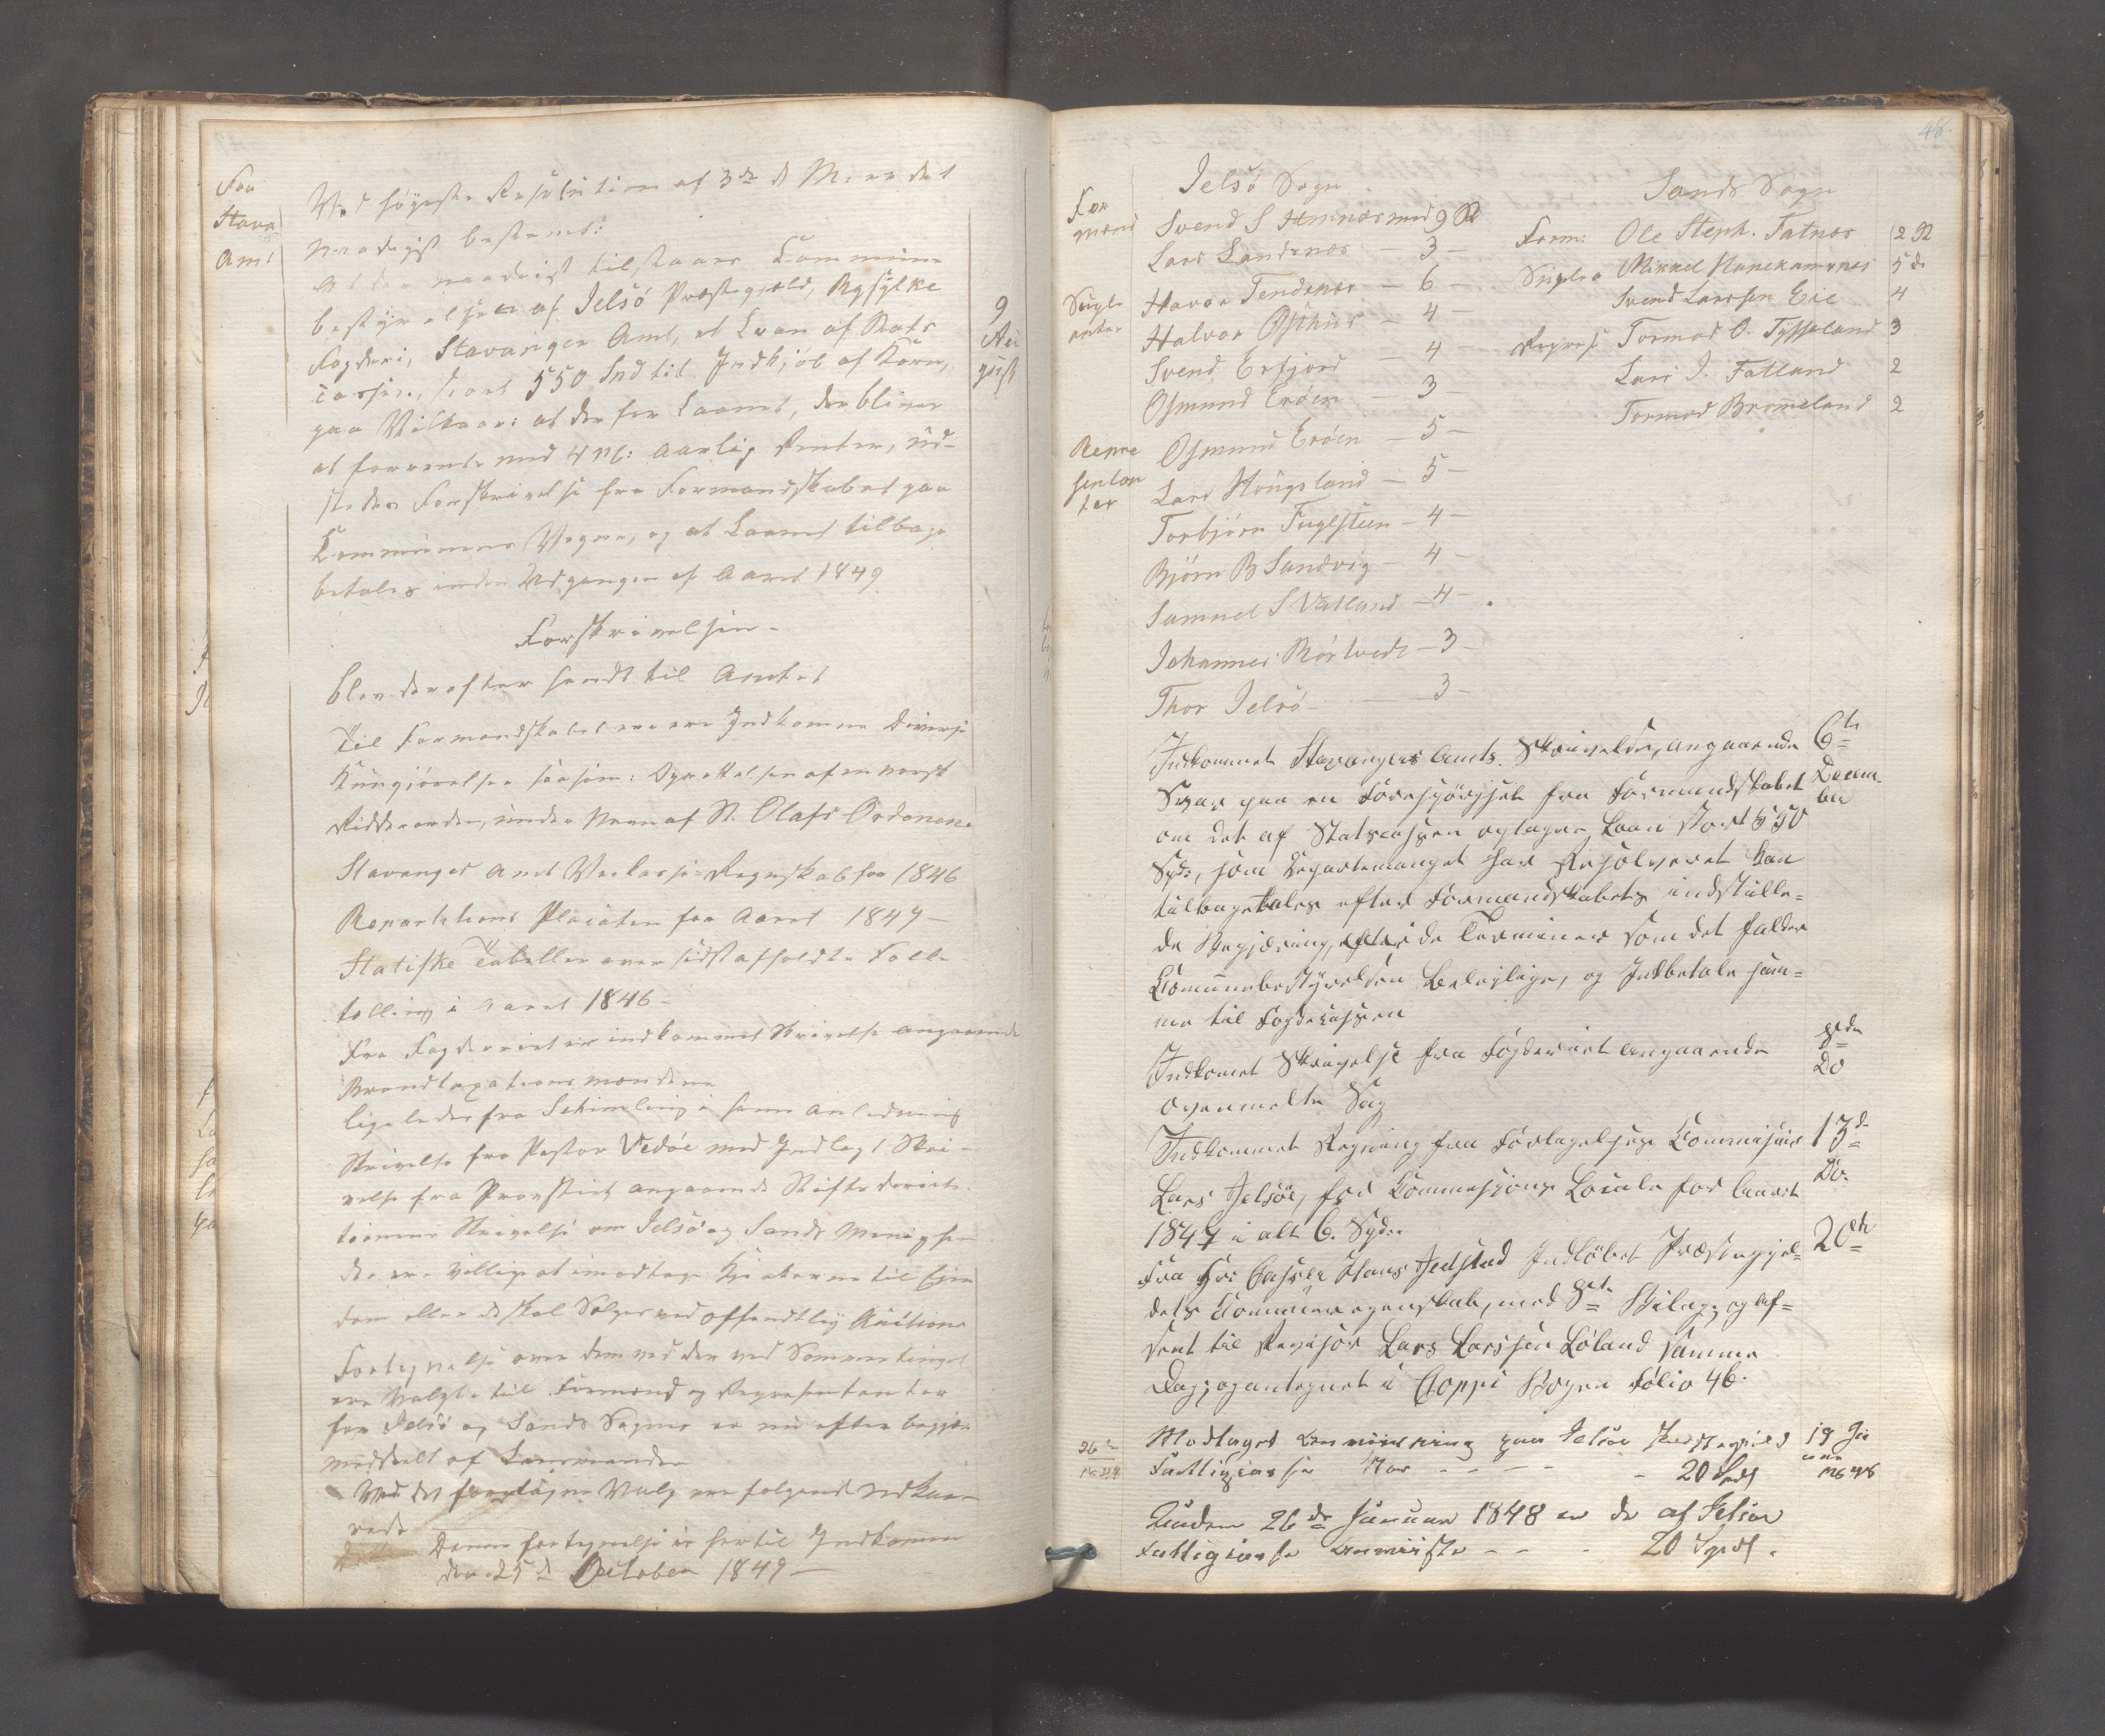 Fra
Stava
Amt
Ved høyeste Resolution af 3de d M: er det
naadigst bestemt:
At der naadigst tilstaaes Commune
bestyrelsen af Jelsø Præstegjæld, Rysylke
Fogderi, Stavanger Amt, et Laan af Stats
cassen, stort 550 Spd til Indkjøb af Korn,
paa Vilkaar: at der for Laanet, der bliver
at forrente med 4 pC: aarlig Renter, ud-
stedes Forskrivelse fra Formandskabet paa
Communens Vegne, og at Laanet tilbage
betales inden Udgangen af Aaret 1849
9
Au
gust
Forskrivelsen
blev derefter sendt til Amtet
Til Formandskabet ere Indkomne Diverse
Kungjørelser saasom: Oprettelsen af en norsk
Ridderorden, under Navn af St. Olafs Ordenen.
Stavanger Amt Veikasse-Regnskab for 1846
Repartitions Placaten for Aaret 1847
Statiske Tabeller over sidst afholdte Folke
telling i Aaret 1846
Fra Fogderiet er indkommet Skrivelse angaaende
Brandtaxationsmændene
ligeledes fra Schimeling i samme Anledning
Skrivelse fra Pastor Vedøe med Indlagt Skri-
velse fra Provstiet angaaende Stiftsdirek-
tionens Skrivelse om Jelsø og Sands Menighe
der ere villige at imodtage Kirkerne til Eien
dom eller de skal Sælges ved offendtlig Auction
Fortegnelse over dem ved der ved Sommertinget
ere Valgte til Formænd og Repræsentanter
for Jelsø og Sands Sogne er nu efter begjær
meddelt af Lensmanden
Ved det foretagne Valg ere følgende Udkaa-
rede
Denne fortegnelse er hertil Indkommen
den 25 d October 1847
48.
Jelsø Sogn
For
mænd
Svend S Hemnæs med 9 St
Lars Sandsnæs 3
Suple
anter
Havar Tendenæs 6
Halvor Østhus 4
Svend Erfjord 4
Osmund Erøen 3
Repre
sentan
ter
Osmund Erøen 5
Lars Hougsland 5
Torbjørn Fuglsteen 4
Bjørn B Sandvig 4
Samuel S Vatland 4
Johannes Rørtvedt 3
Thor Jelsø 3
Sands Sogn
Form: Ole Steph. Fatnæs 2 St
Suplea Mikkel Hanekamnæs 5 do
Svend Larssen Eie 4
Repres Tormod O. Tysseland 3
Lars J. Fatland 2
Tormod Brommeland 2
Indkommet Stavangers Amts Skrivelse, angaaende
Svar paa en Forespørgsel fra Formandskabet
om det af Statscassen optagne Laan stort 550
Spd:, som Departemanget har Resolveret kan
tilbagebetales efter Formandskabets indstille-
de Begjæring, efter de Terminer som det falder
Comunebestyrelsen beleylige, og Indbetale sam-
me til Fogdecassen
6te
Decem-
ber
Indkomet Skrivelse fra Fogderiet angaaende
ovenmelte Sag
8de
Do
Indkommet Regning fra Forligelses Commissair
Lars Jelsøe, for Commissions Locale for Aaret
1847 i alt 6. Spd:
13de
Do.
Fra Hr: Casser Hans Jelstad Indløbet Præstegjel-
dets Communeregenskab, med 8et Bilag, og af-
sent til Revisor Lars Larssen Løland samme
Dag, og antegnet i Coppi Bogen Folio 46.
20de
26de
Modtaget Anvisning paa Jelsøe Præstegield
Fattigkasse stor 20 Spdl
19 Ja
nuar
Under 26de Januar 1848 er de af Jelsøe
Fattigkasse anviiste 20 Spdl.